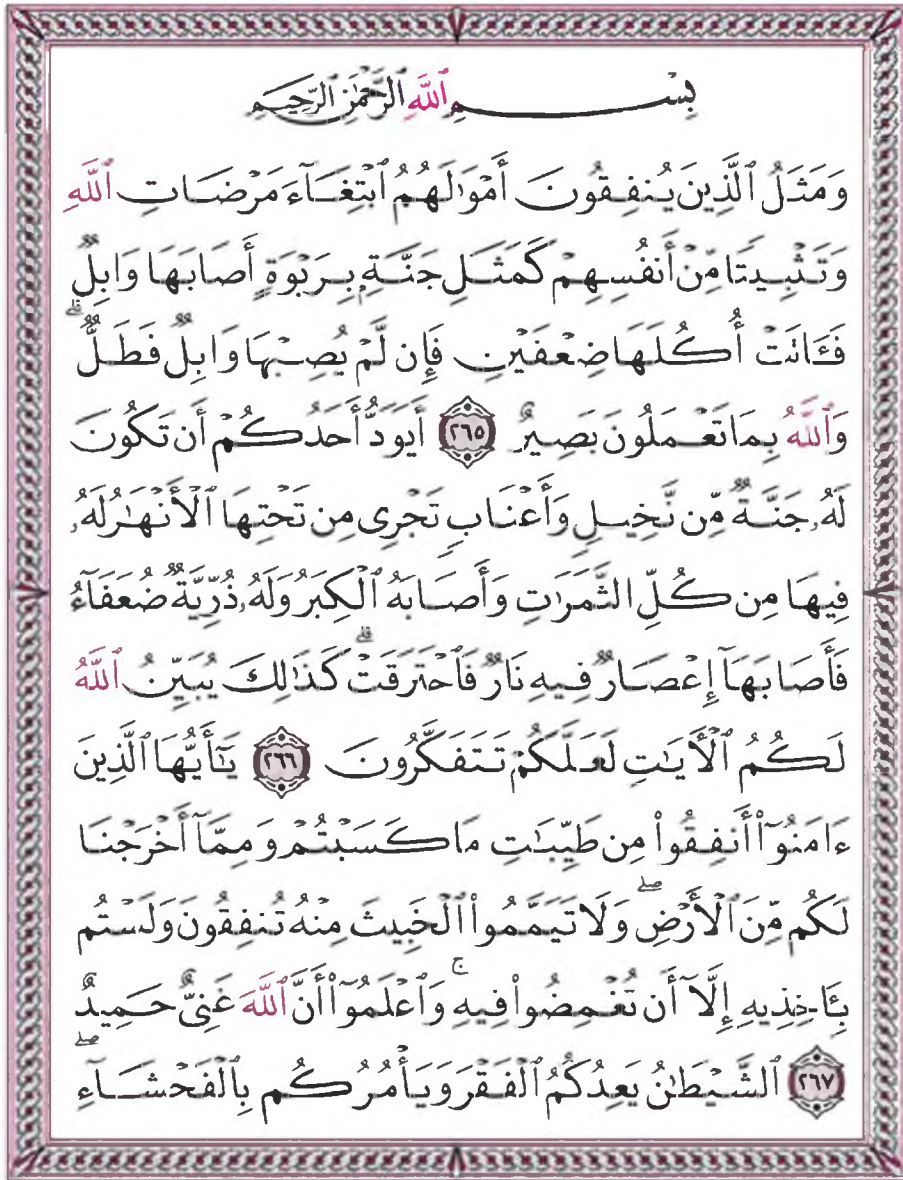 بِسْمِ ٱللَّهِ ٱلرَّحْمَٰنِ ٱلرَّحِيمِ
وَمَثَلُ ٱلَّذِينَ يُنفِقُونَ أَمْوَٰلَهُمُ ٱبْتِغَآءَ مَرْضَاتِ ٱللَّهِ
وَتَثْبِيتًا مِّنْ أَنفُسِهِمْ كَمَثَلِ جَنَّةٍۭ بِرَبْوَةٍ أَصَابَهَا وَابِلٌ
فَـَٔاتَتْ أُكُلَهَا ضِعْفَيْنِ فَإِن لَّمْ يُصِبْهَا وَابِلٌ فَطَلٌّ ۗ
وَٱللَّهُ بِمَا تَعْمَلُونَ بَصِيرٌ ٢٦٥ أَيَوَدُّ أَحَدُكُمْ أَن تَكُونَ
لَهُۥ جَنَّةٌ مِّن نَّخِيلٍ وَأَعْنَابٍ تَجْرِى مِن تَحْتِهَا ٱلْأَنْهَٰرُ لَهُۥ
فِيهَا مِن كُلِّ ٱلثَّمَرَٰتِ وَأَصَابَهُ ٱلْكِبَرُ وَلَهُۥ ذُرِّيَّةٌ ضُعَفَآءُ
فَأَصَابَهَآ إِعْصَارٌ فِيهِ نَارٌ فَٱحْتَرَقَتْ ۗ كَذَٰلِكَ يُبَيِّنُ ٱللَّهُ
لَكُمُ ٱلْـَٔايَٰتِ لَعَلَّكُمْ تَتَفَكَّرُونَ ٢٦٦ يَٰٓأَيُّهَا ٱلَّذِينَ
ءَامَنُوٓا۟ أَنفِقُوا۟ مِن طَيِّبَٰتِ مَا كَسَبْتُمْ وَمِمَّآ أَخْرَجْنَا
لَكُم مِّنَ ٱلْأَرْضِ ۖ وَلَا تَيَمَّمُوا۟ ٱلْخَبِيثَ مِنْهُ تُنفِقُونَ وَلَسْتُم
بِـَٔاخِذِيهِ إِلَّآ أَن تُغْمِضُوا۟ فِيهِ ۚ وَٱعْلَمُوٓا۟ أَنَّ ٱللَّهَ غَنِىٌّ حَمِيدٌ
٢٦٧ ٱلشَّيْطَٰنُ يَعِدُكُمُ ٱلْفَقْرَ وَيَأْمُرُكُم بِٱلْفَحْشَآءِ ۖ